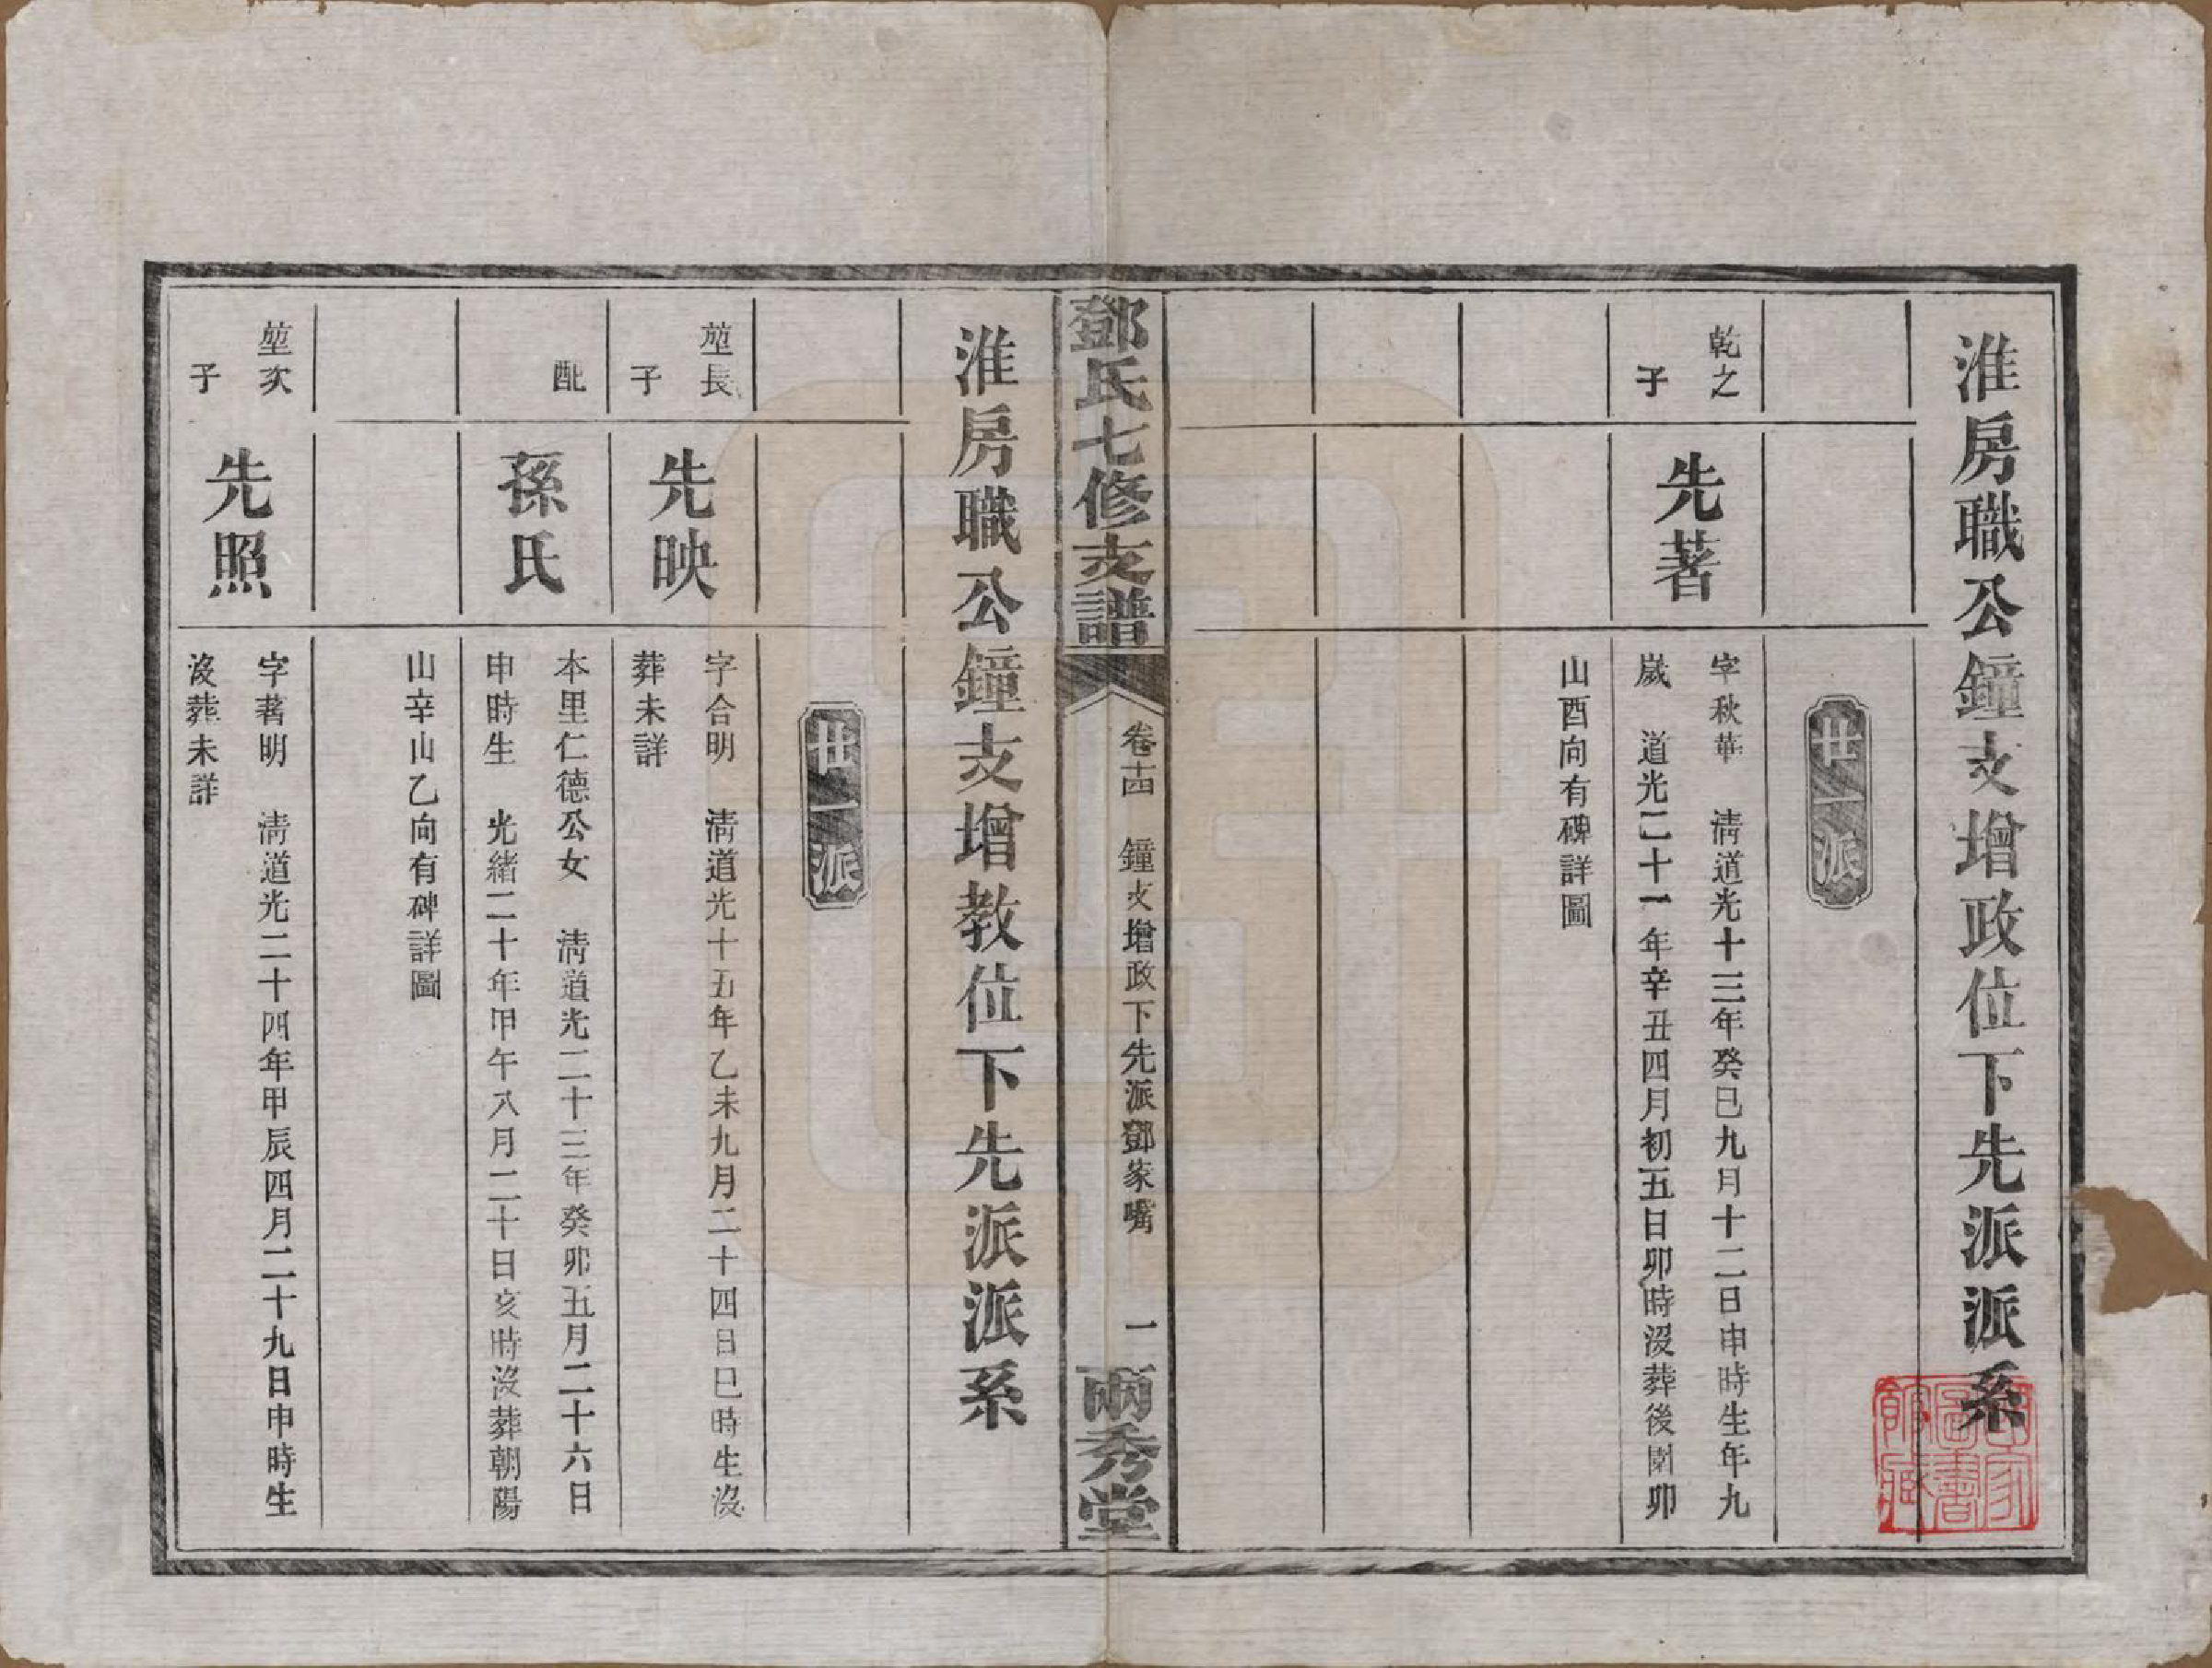 淮房職公鐘支增政位下先派派系
廿一派
乾之子
先著
字秋華　淸道光十三年癸巳九月十二日申時生年九
歲　道光二十一年辛丑四月初五日卯時沒葬後園卯
山酉向有碑詳圖
鄧氏七修支譜
卷十四　鐘支增政下先派鄧家嘴　一
兩秀堂
淮房職公鐘支增教位下先派派系
廿一派
堃長子
先映
字合明　淸道光十五年乙未九月二十四日巳時生沒
葬未詳
配
孫氏
本里仁德公女　淸道光二十三年癸卯五月二十六日
申時生　光緒二十年甲午八月二十日亥時沒葬朝陽
山辛山乙向有碑詳圖
堃次子
先照
字著明　淸道光二十四年甲辰四月二十九日申時生
沒葬未詳